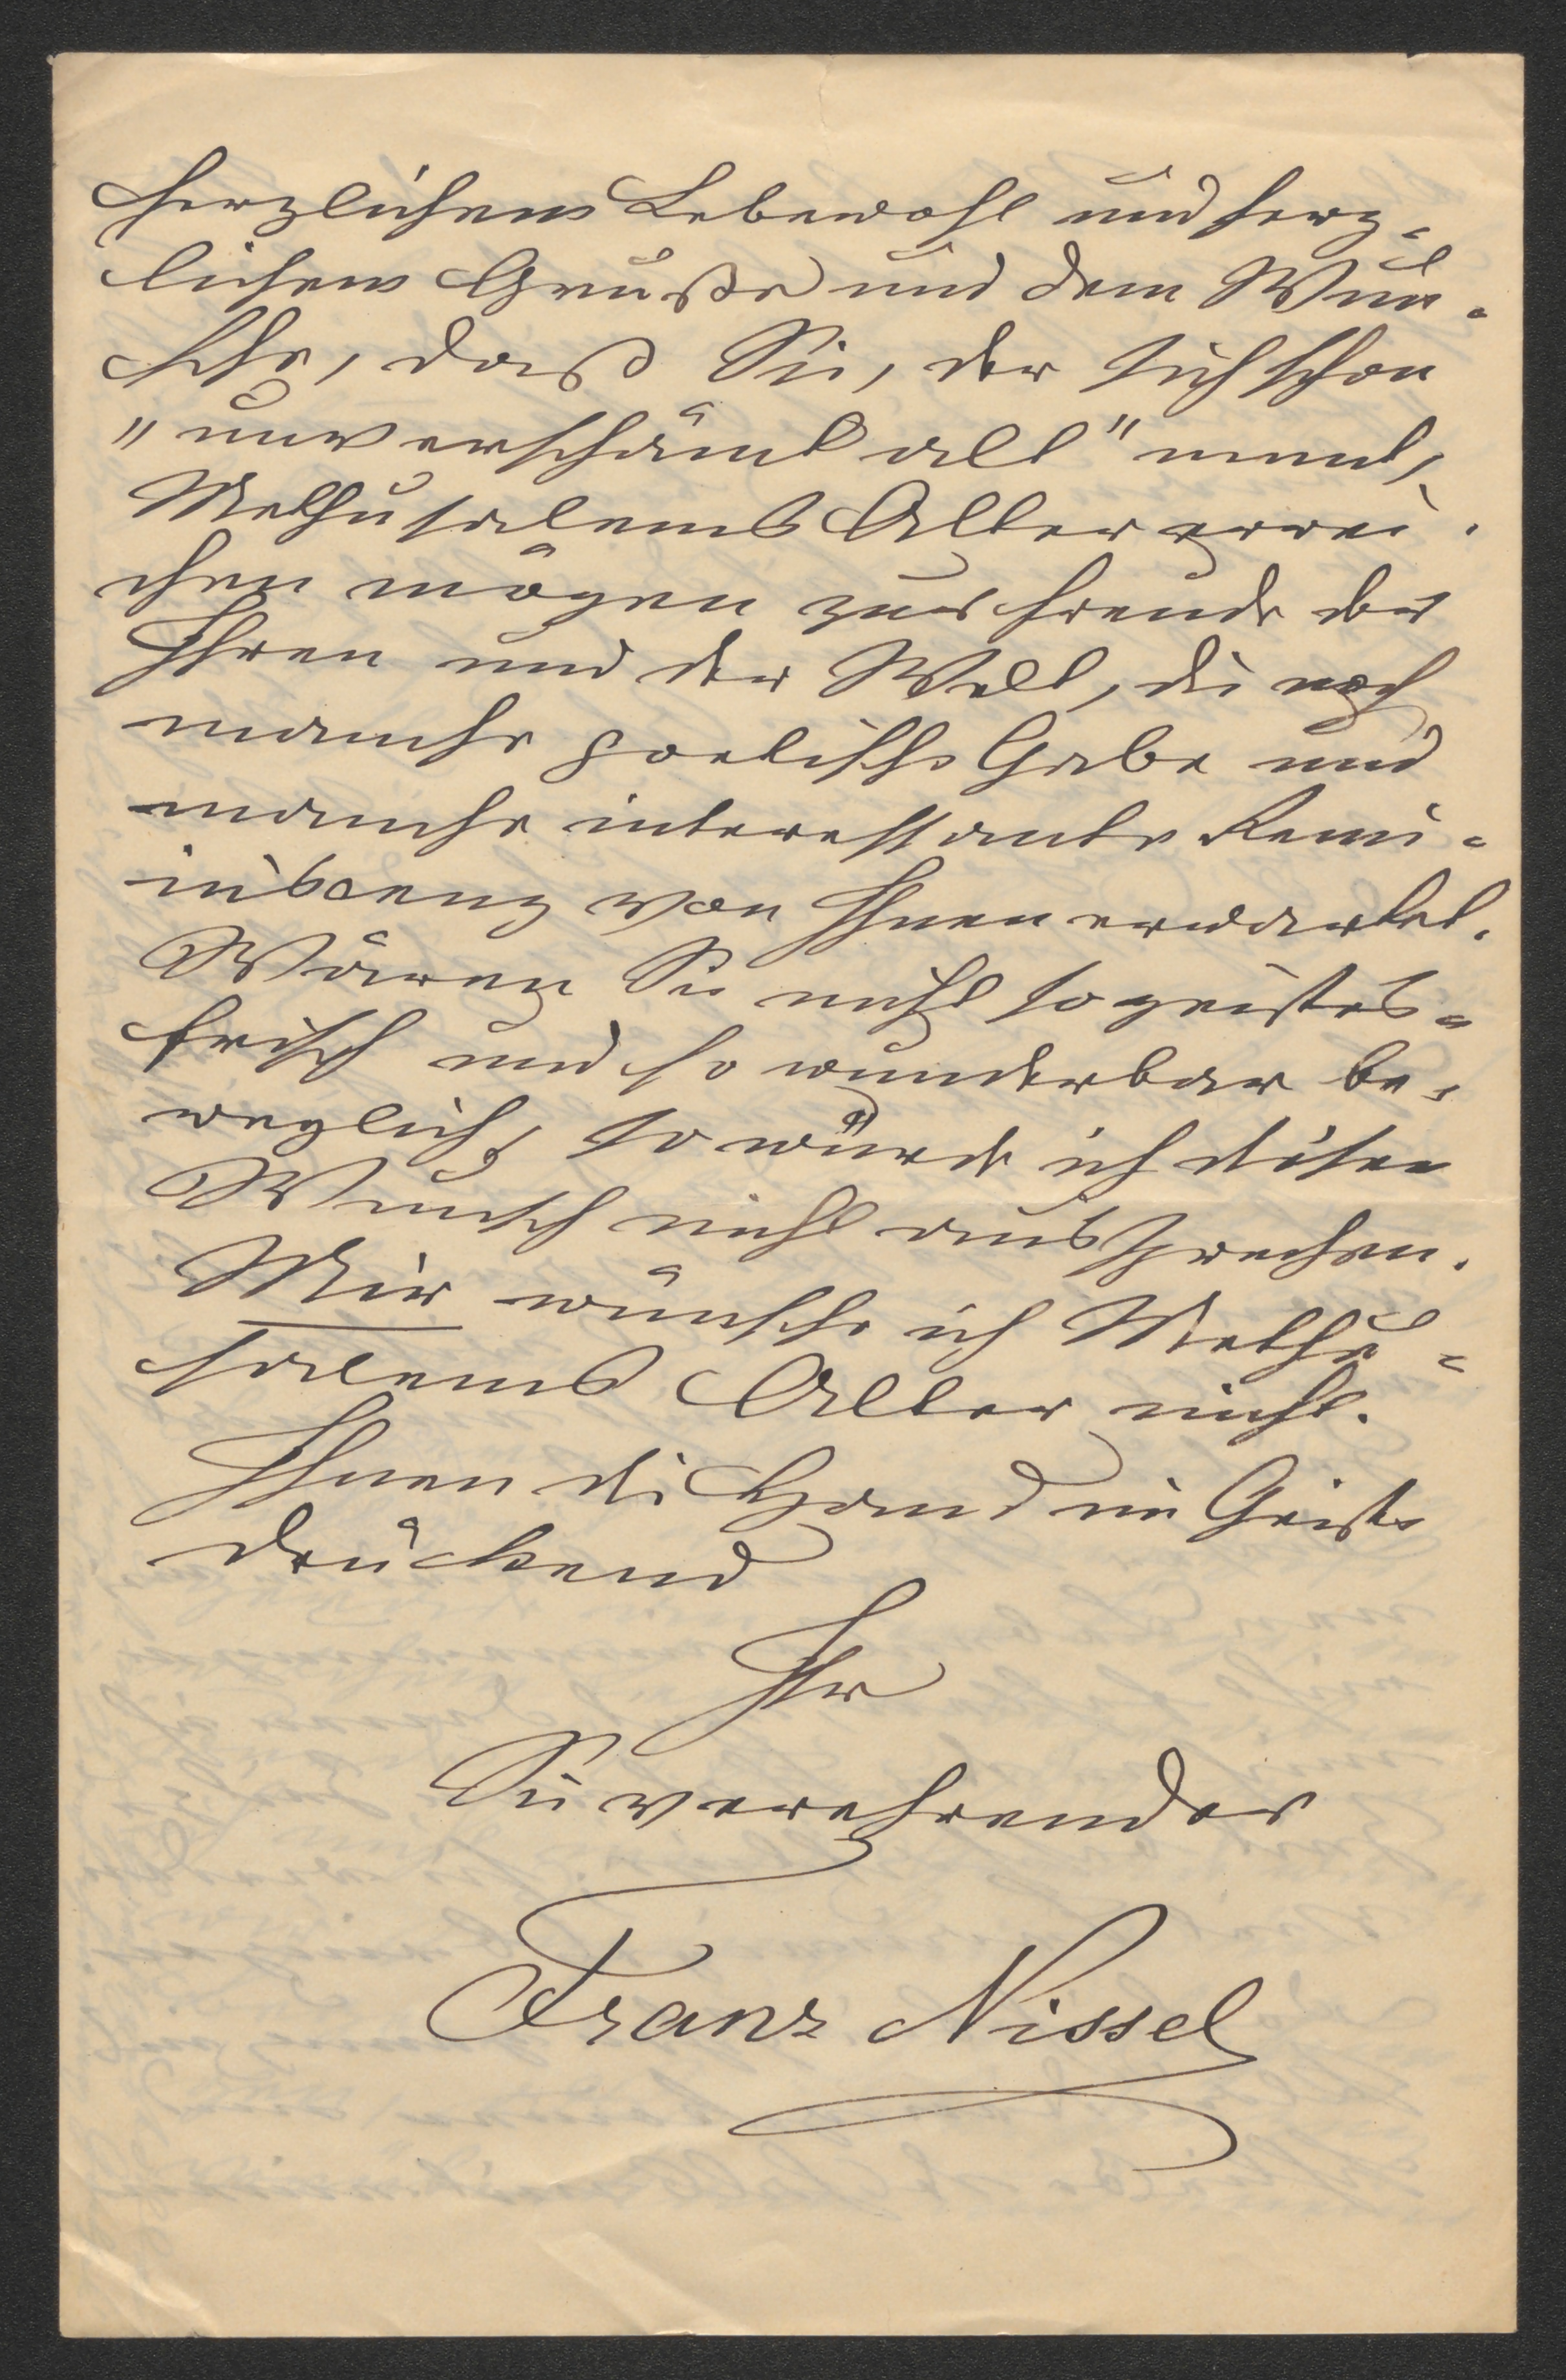 herzlichem Lebewohl und herz-
lichem Gruße und dem Wun-
sche, daß Sie, der sich schon
"unverschämt alt" nennt,
Methusalems Alter errei-
chen mögen zur Freude der
Ihren und der Welt, die noch
manche poetische Gabe und
manche interessante Remi-
niscenz von Ihnen erwartet.
Wären Sie nicht so geistes-
frisch und so wunderbar be-
weglich, so würde ich diesen
Wunsch nicht aussprechen.
Mir wünsche ich Methu-
salems Alter nicht.
Ihnen die Hand im Geiste
drückend
Ihr
Sie verehrender
Franz Nissel